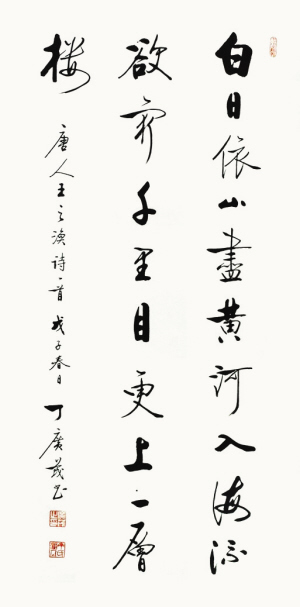 白日依山盡黄河入海流
欲窮千里目更上一層
楼
唐人王之渙詩一首 戊子春日
丁廣茂书